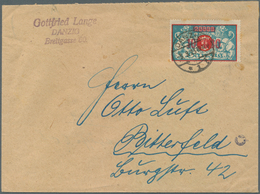 Gottfried Lange
DANZIG
Herrn
Otto Luft
Bitterfeld
Burgstr. 42